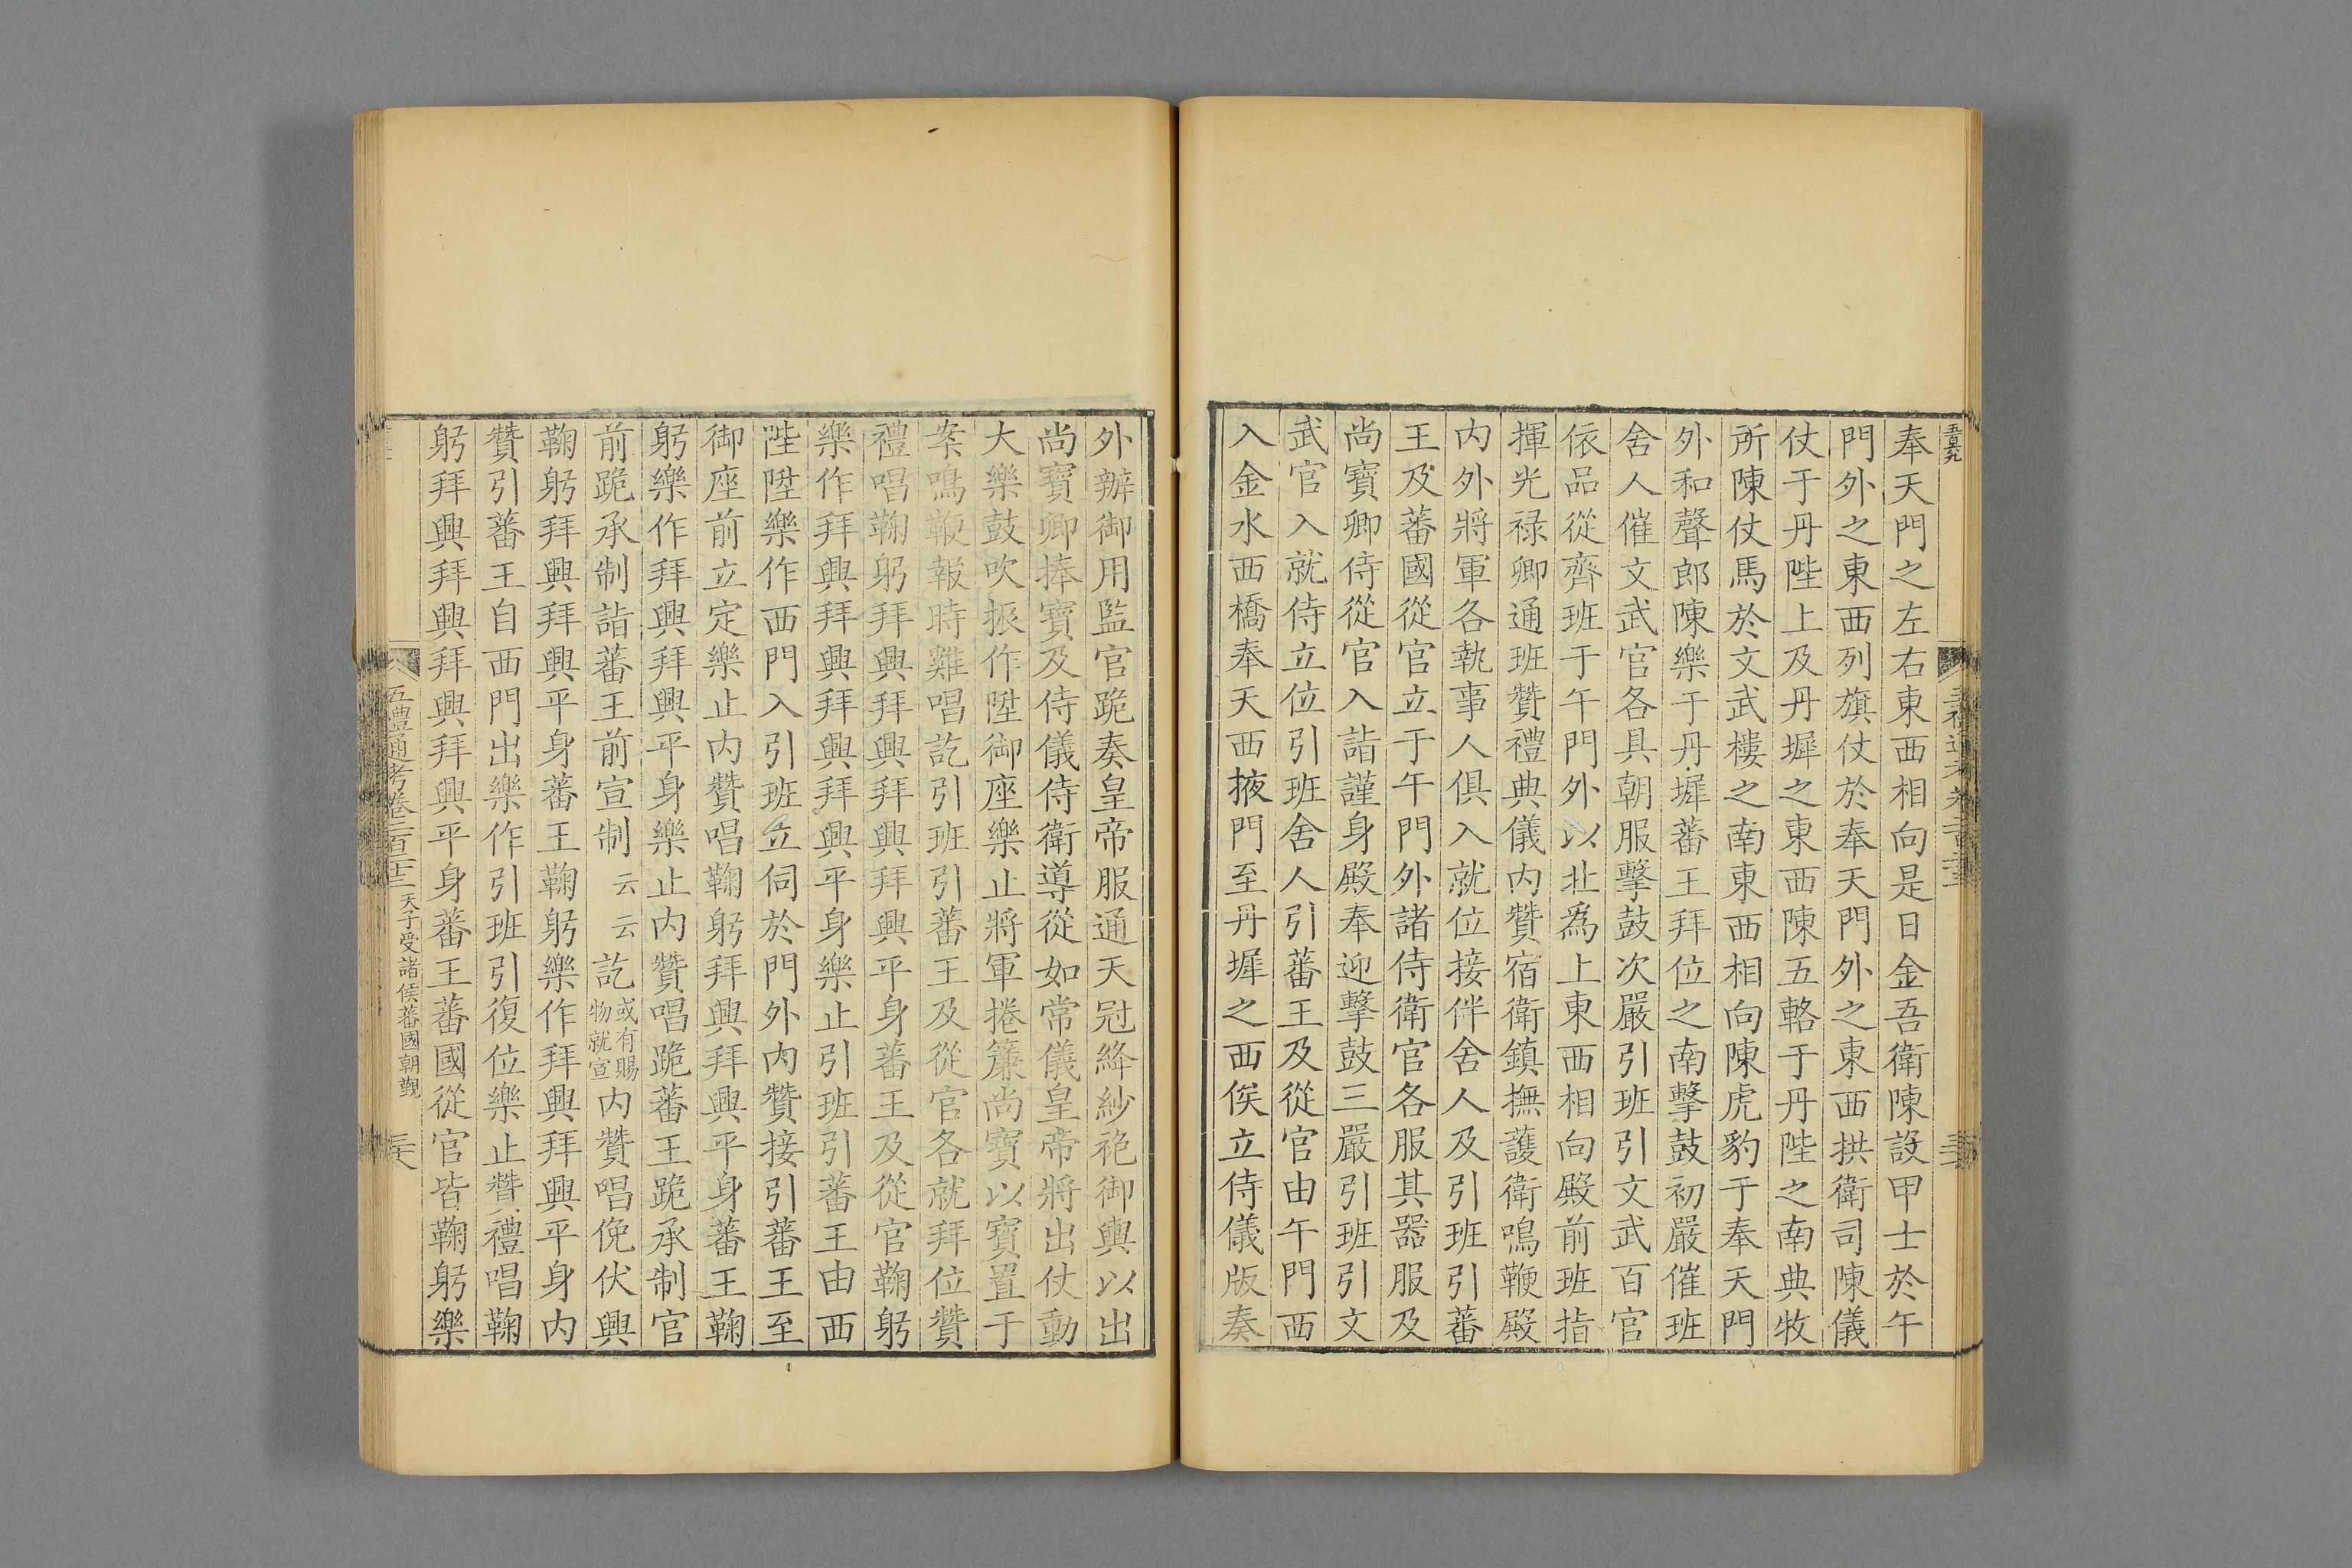 奉天門之左右東西相向是日金吾衛陳設甲士於午
門外之東西列旗仗於奉天門外之東西拱衛司陳儀
仗于丹陛上及丹墀之東西陳五輅于丹陛之南典牧
所陳仗馬於文武樓之南東西相向陳虎豹于奉天門
外和聲郎陳樂于丹墀蕃王拜位之南擊鼓初嚴催班
舍人催文武官各具朝服擊鼓次嚴引班引文武百官
依品從齊班于午門外以北爲上東西相向殿前班指
揮光祿卿通班贊禮典儀內贊宿衛鎮撫護衛鳴鞭殿
內外將軍各執事人俱入就位接伴舍人及引班引蕃
王及蕃國從官立于午門外諸侍衛官各服其器服及
尚寶卿侍從官入詣謹身殿奉迎擊鼓三嚴引班引文
武官入就侍立位引班舍人引蕃王及從官由午門西
入金水西橋奉天西掖門至丹墀之西俟立侍儀版奏
外辦御用監官跪奏皇帝服通天冠絳紗袍御輿以出
尚寶卿捧寶及侍儀侍衛導從如常儀皇帝將出仗動
大樂鼓吹振作陞御座樂止將軍捲簾尚寶以寶置于
案鳴鞭報時雞唱訖引班引蕃王及從官各就拜位贊
禮唱鞠躬拜興拜興拜興拜興平身蕃王及從官鞠躬
樂作拜興拜興拜興拜興平身樂止引班引蕃王由西
陛陞樂作西門入引班立伺於門外內贊接引蕃王至
御座前立定樂止內贊唱鞠躬拜興拜興平身蕃王鞠
躬樂作拜興拜興平身樂止內贊唱跪蕃王跪承制官
前跪承制詣蕃王前宣制云云訖或有賜物就宣內贊唱俛伏興
鞠躬拜興拜興平身蕃王鞠躬樂作拜興拜興平身內
贊引蕃王自西門出樂作引班引復位樂止贊禮唱鞠
躬拜興拜興拜興拜興平身蕃王蕃國從官皆鞠躬樂
五禮通考卷二百二十二 天子受諸侯蕃國朝覲